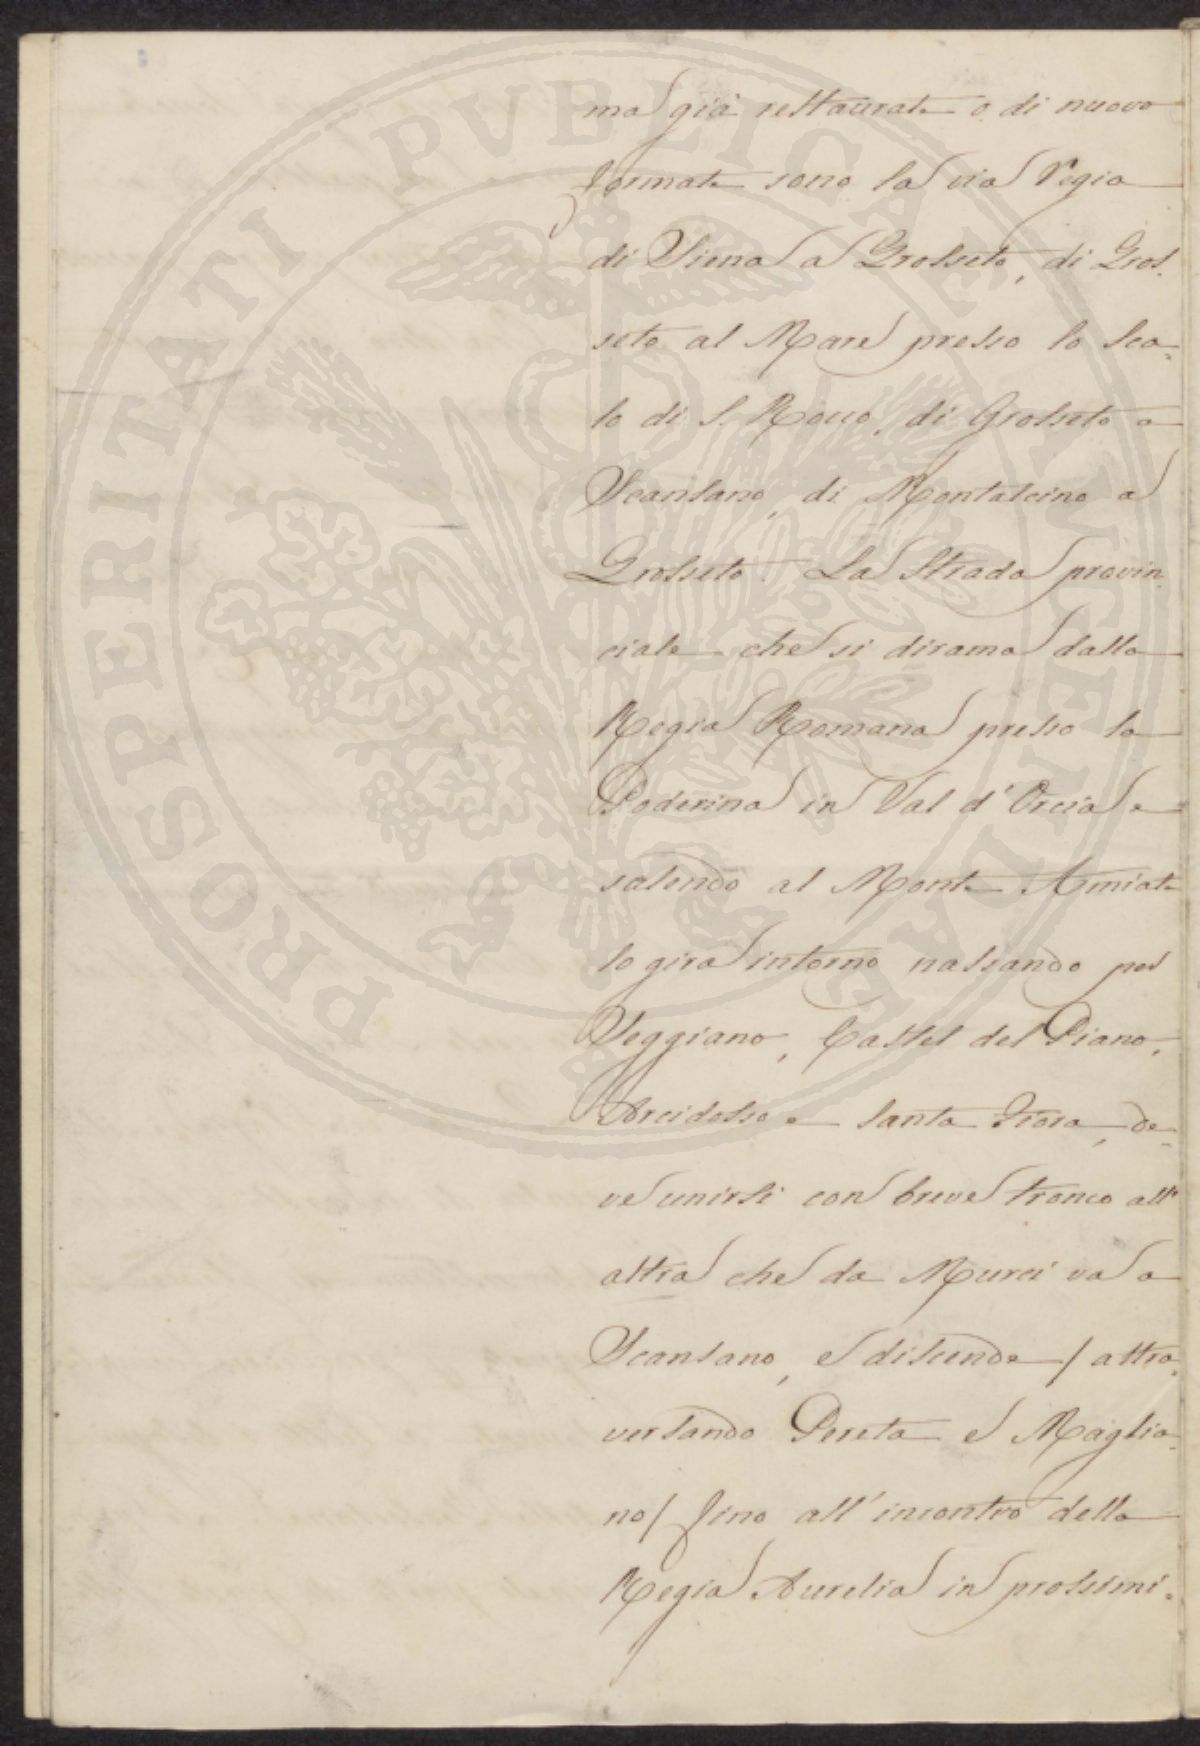 ma già restaurate o di nuovo
formate sono la via Regia
di Siena a Grosseto, di Gros-
seto al Mare presso lo Sca-
lo di S. Rocco, di Grosseto a
Scansano, di Montalcino a
Grosseto. La Strada provin-
ciale che si dirama dalla
Regia Romana presso la
Poderina in Val d'Orcia e
salendo al Monte Amiata
lo gira intorno passando per
Seggiano, Castel del Piano,
Arcidosso e Santa Fiora, de-
ve unirsi con breve tronco all'
altra che da Murci va a
Scansano, e discende / attra-
versando Pereta e Maglia-
no / fino all'incontro della
Regia Aurelia in prossimi-
PROSPERITATI PVBLICAE AVGENDAE